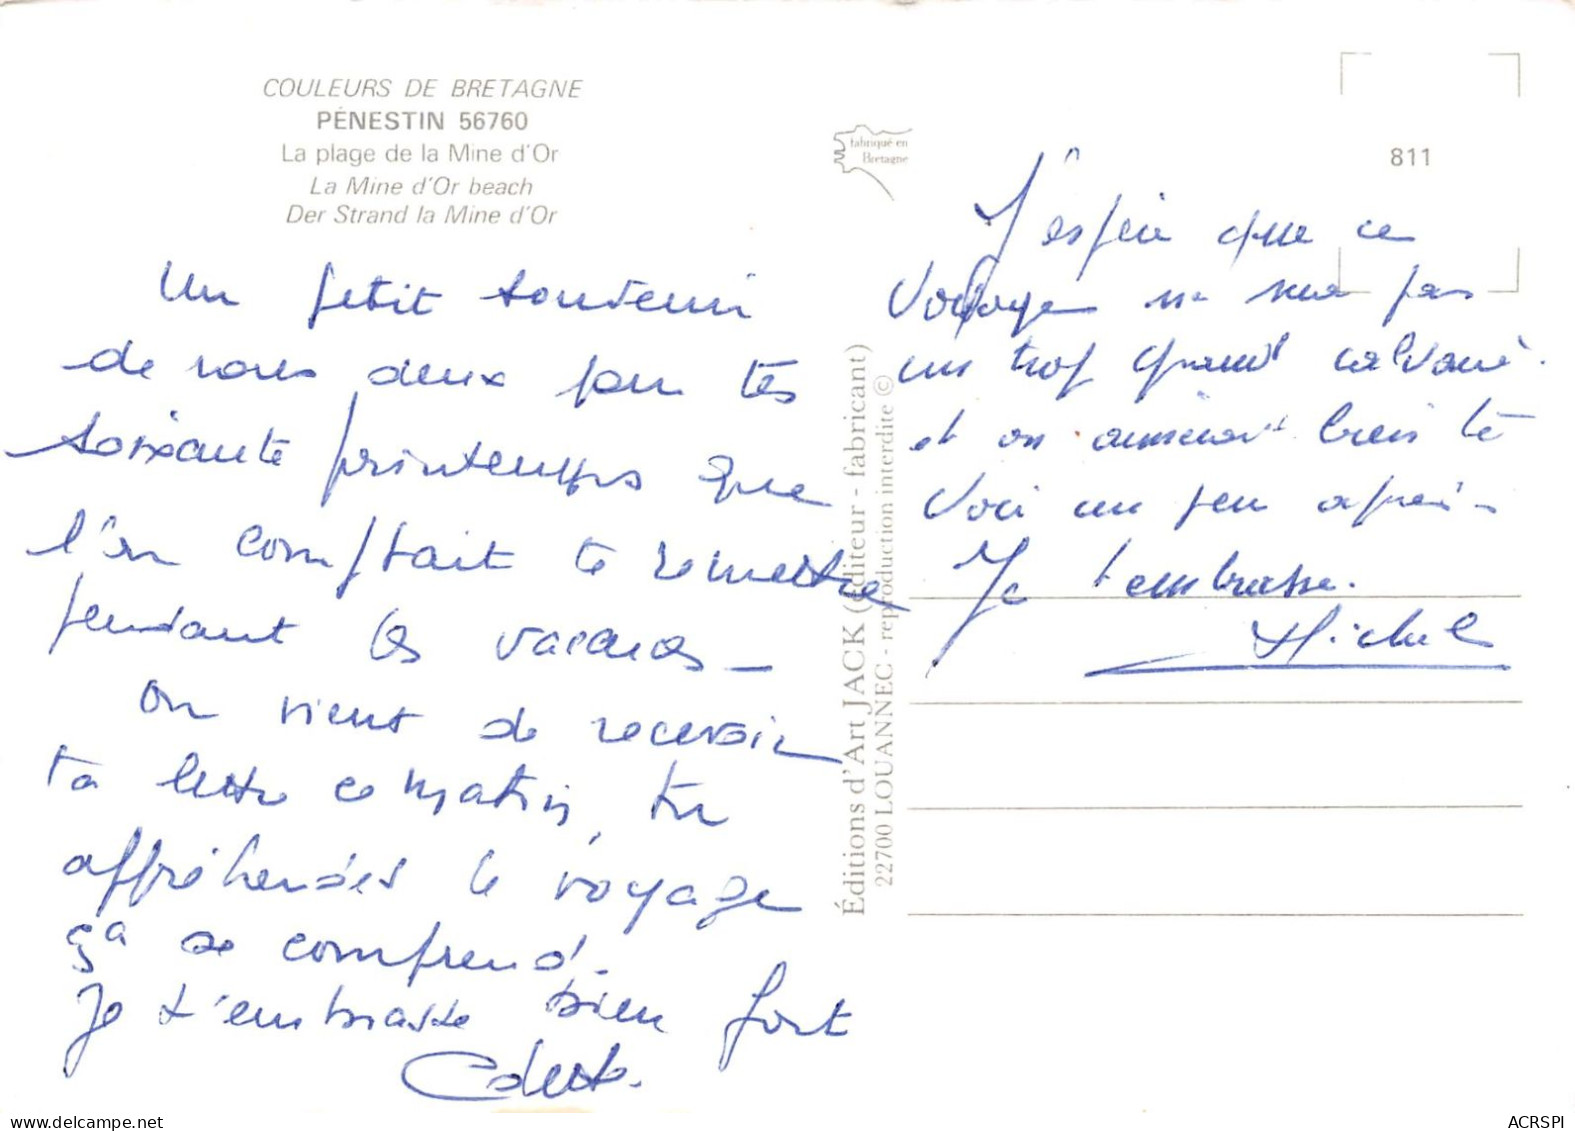 COULEURS DE BRETAGNE
PÉNESTIN 56760
La plage de la Mine d'Or
La Mine d'Or beach
Der Strand la Mine d'Or
Un petit souvenir
de nous deux pour tes
soixante printemps que
l'on comptait te remettre
pendant les vacances _
On vient de recevoir
ta lettre ce matin, tu
appréhendes le voyage
ça se comprend.
Je t'embrasse bien fort
Céleste.
fabriqué en
Bretagne
Éditions d'Art JACK (éditeur - fabricant)
22700 LOUANNEC - reproduction interdite ©
811
J'espère que ce
Voyage ne sera pas
un trop grand calvaire.
et on aimerait bien te
Voir un peu après -
Je t'embrasse.
Michel
www.delcampe.net
ACRSPI